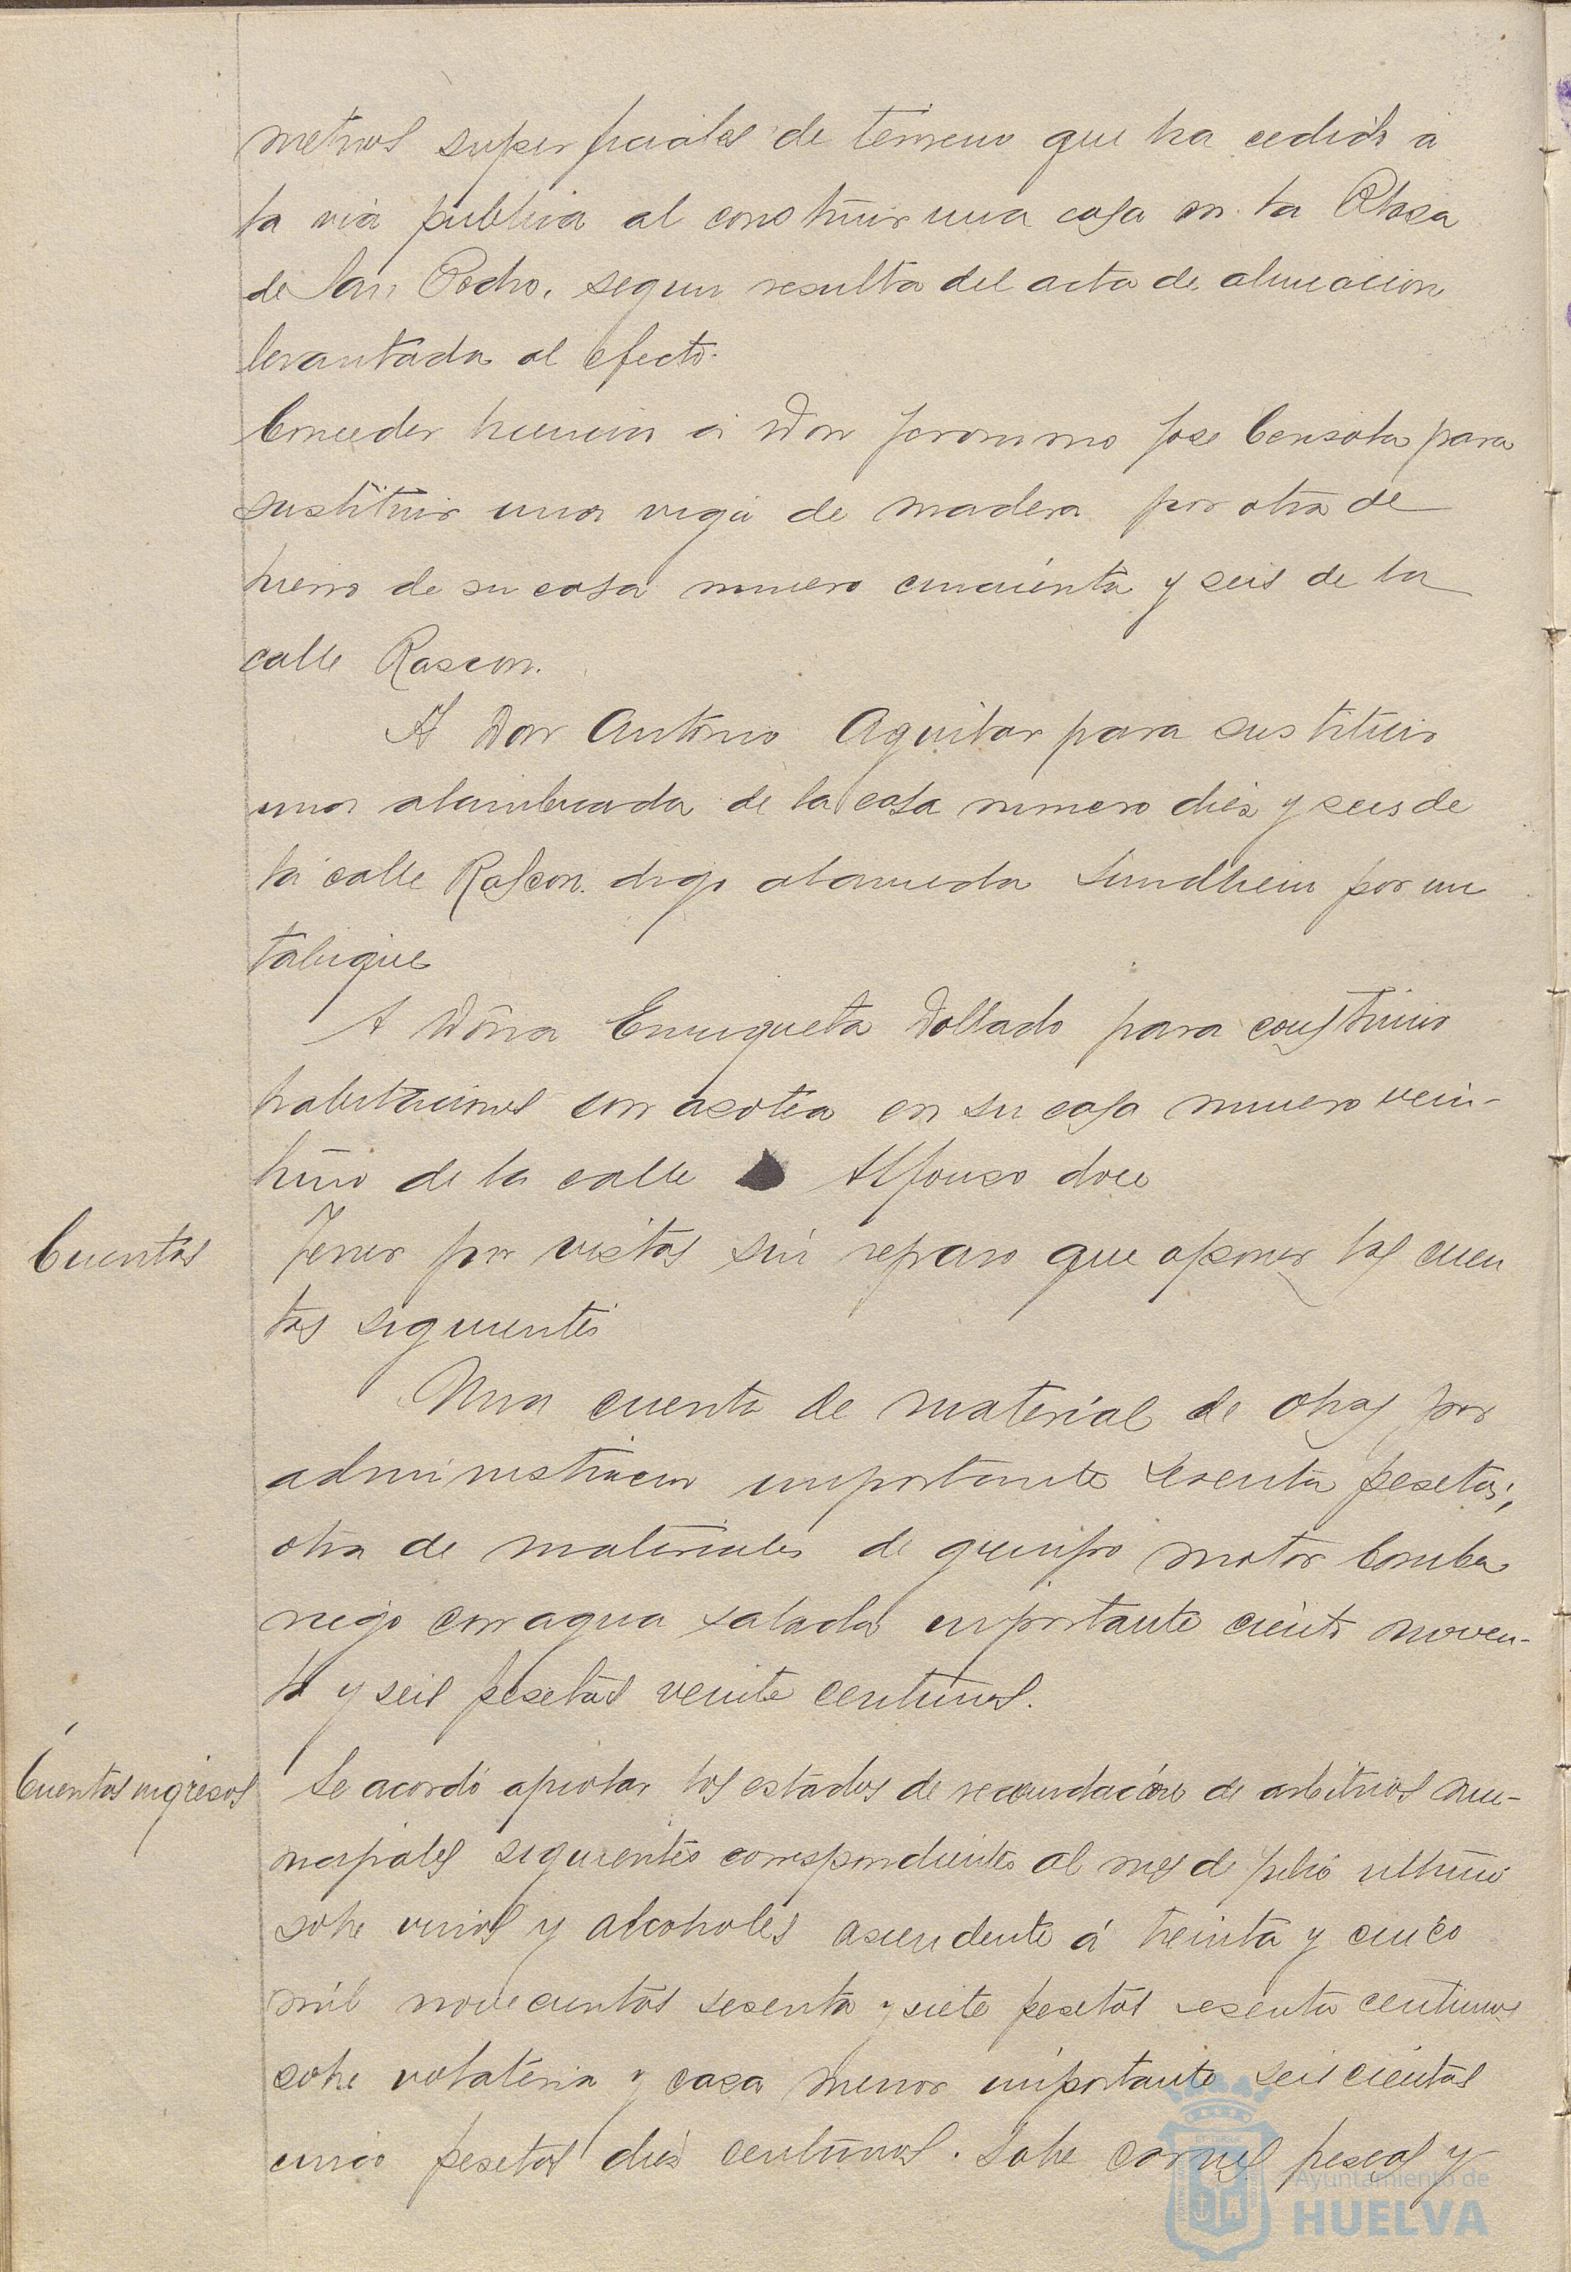 metros superficiales de terreno que ha cedido á
la via publica al construir una casa en la Plaza
de San Pedro, segun resulta del acta de alineacion
levantada al efecto.
Conceder licencia á Don Jeronimo Jose para
sustituir una viga de madera por otra de
hierro de su casa numero cincuenta y seis de la
calle Rascon.
A Don Antonio Aguilar para sustituir
una alambrada de la casa numero diez y seis de
la calle Rascon digo alameda Sundhein por un
tabique
A Doña Enriqueta Dollado para construir
habitaciones con azotea en su casa numero vein-
tiuno de la calle Alfonso doce
Cuentas
Tener por vistas sin reparo que oponer las cuen
tas siguientes
Una cuenta de material de obras por
administracion importante sesenta pesetas;
otra de materiales de grupo motor bomba
riego con agua salada importante ciento noven-
ta y seis pesetas veinte centimos.
Cuentas ingresos
Se acordó aprobar los estados de recaudación de arbitrios mu-
nicipales siguientes correspondientes al mes de julio ultimo
sobre vinos y alcoholes ascendente á treinta y cinco
mil novecientas sesenta y siete pesetas sesenta centimos
sobre volateria y caza menor importante seiscientas
cinco pesetas diez centimos. Sobre carnes pescas y
Ayuntamiento de
HUELVA